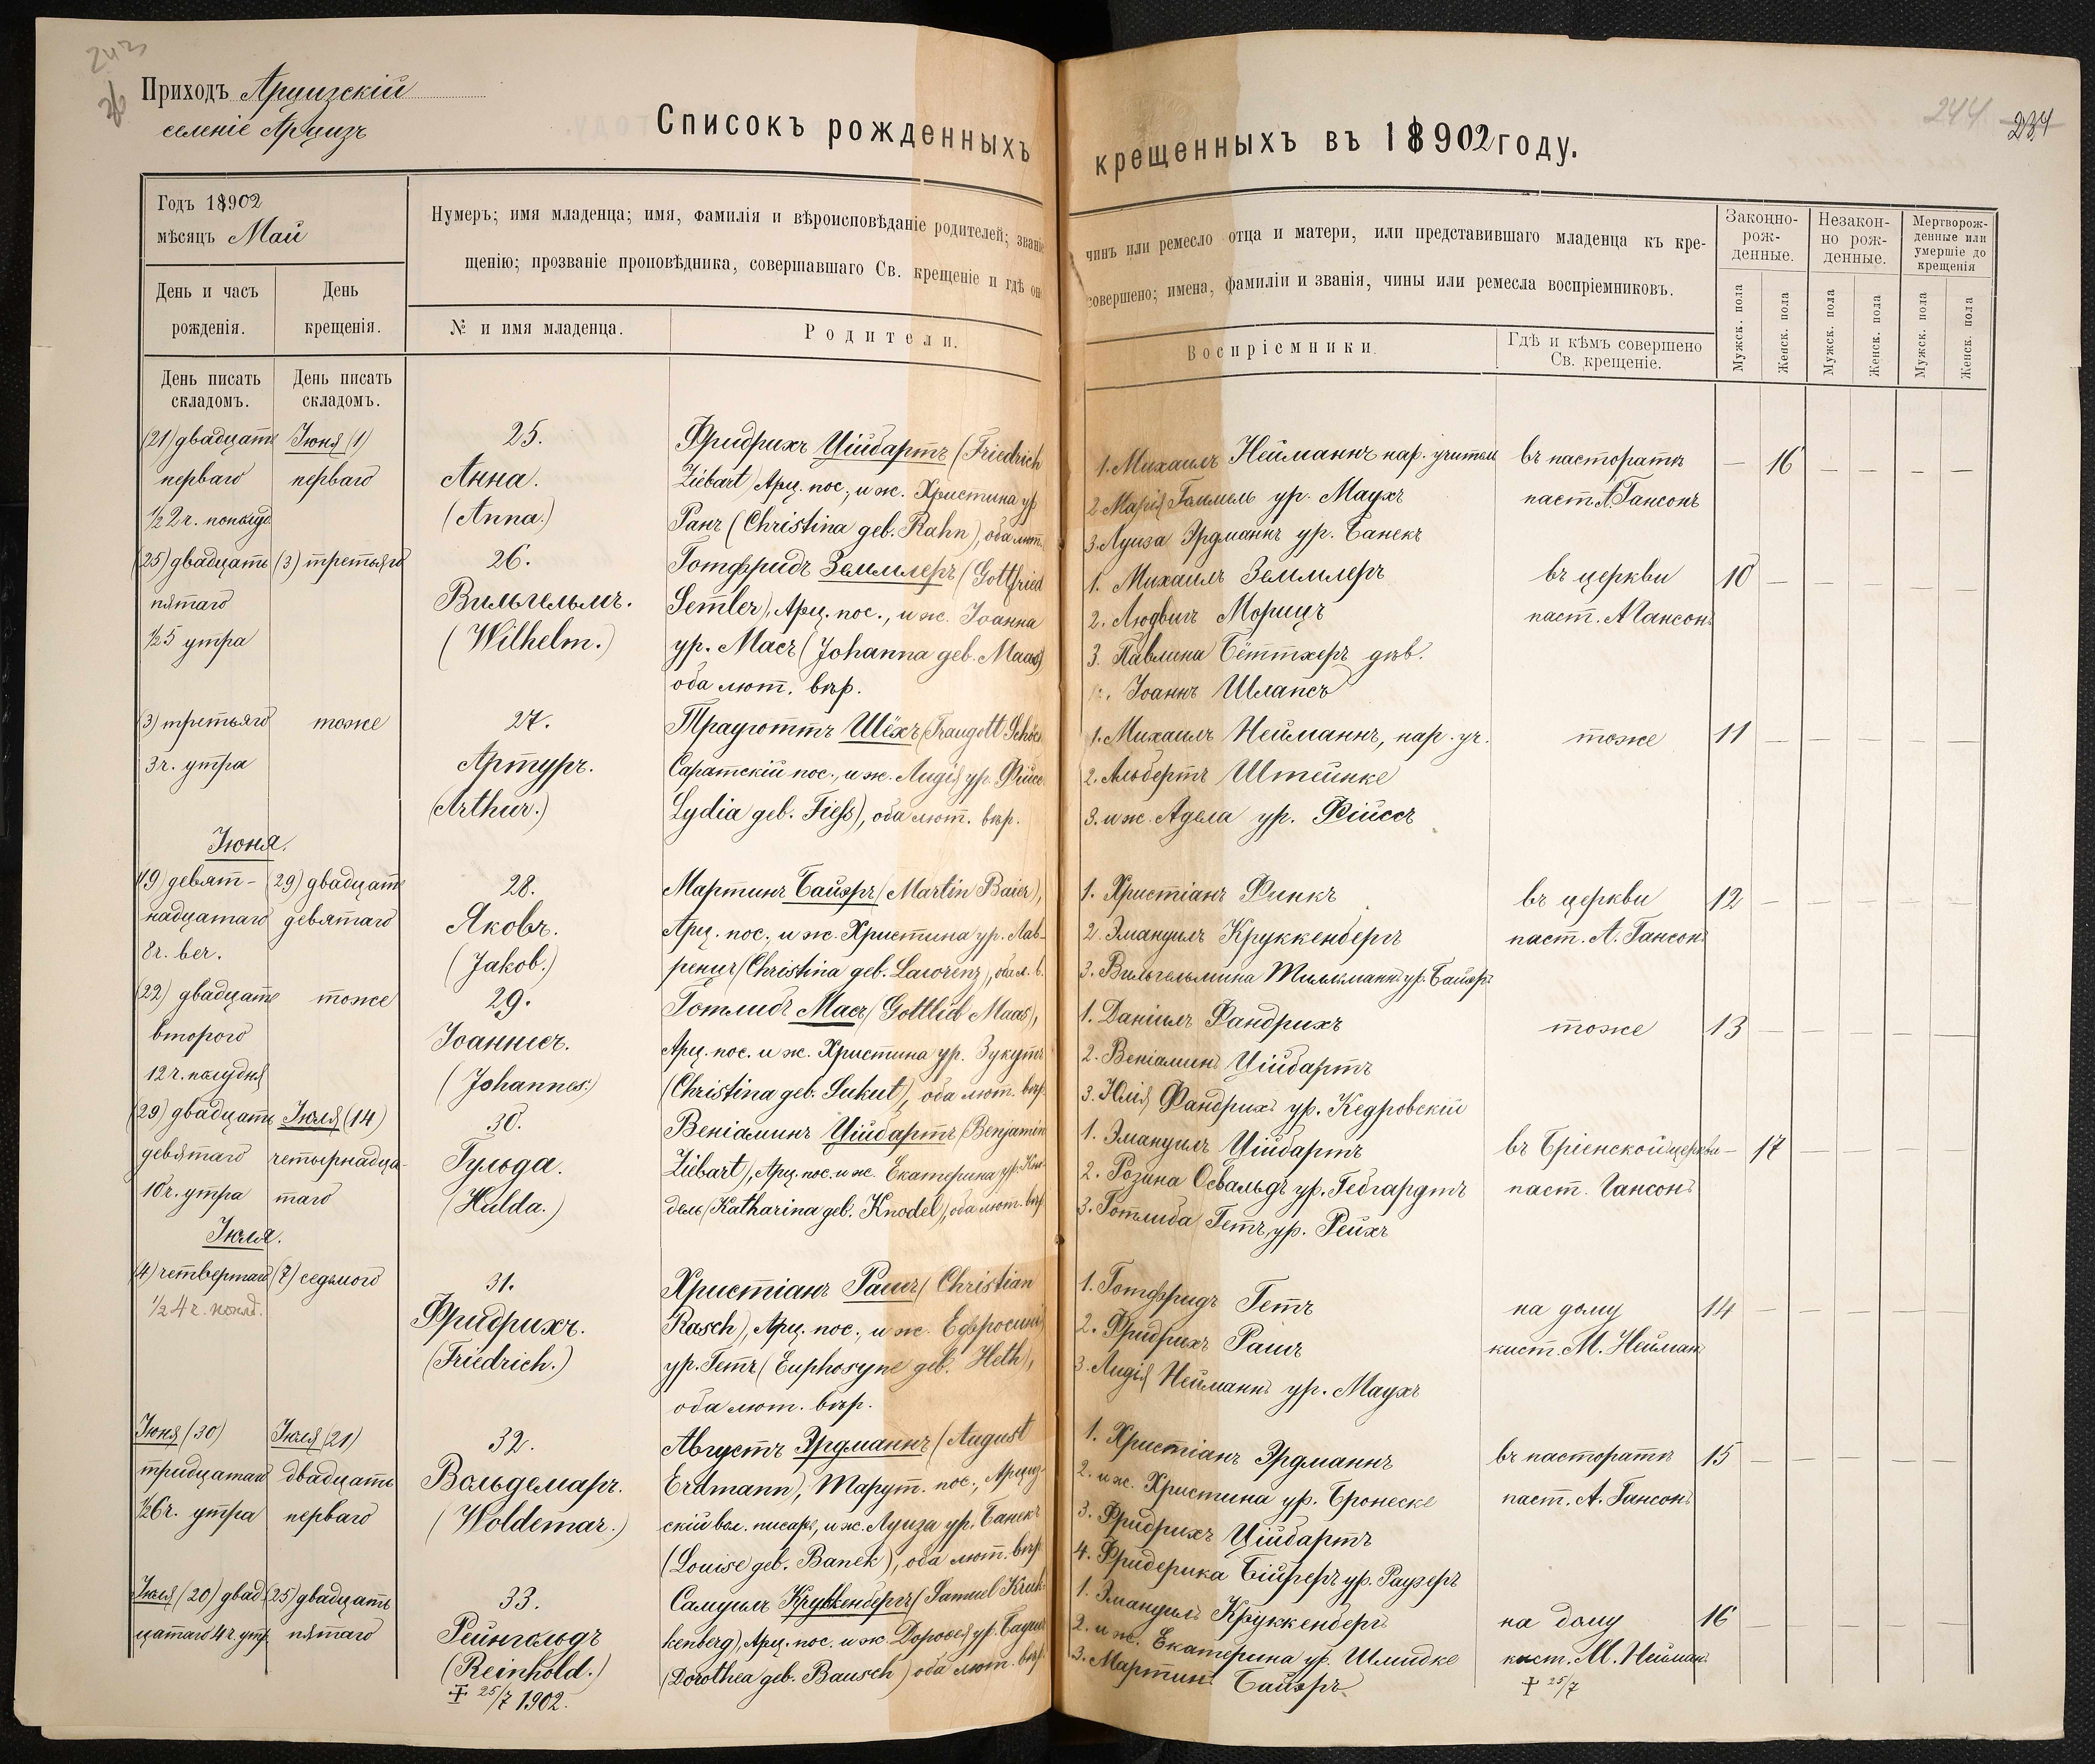 243
26
Приходъ Арцизскій
селеніе Арцизъ
Списокъ рожденныхъ
Годъ 18902
мѣсяцъ Май
Нумеръ; имя младенца; имя, фамилія и вѣроисповѣданіе родителей; званіе
щенію; прозваніе проповѣдника, совершавшаго Св. крещеніе и гдѣ он
День и часъ рожденія.
День крещенія.
№ и имя младенца.
Родители.
День писать складомъ.
День писать складомъ.
(21) двадцать
перваго
½ 2 ч. пополуд.
Іюня (1)
перваго
25.
Анна.
(Anna.)
Фридрихъ Ційбартъ (Friedrich
Ziebart) Арц. пос., и ж. Христина ур
Ранъ (Christina geb. Rahn), оба лют.
(25) двадцать
пятаго
½ 5 утра
(3) третьяго
26.
Вильгельмъ.
(Wilhelm.)
Готфридъ Землеръ (Gottfried
Semler), Арц. пос., и ж. Іоанна
ур. Масъ (Johanna geb. Maas)
оба лют. вѣр.
(3) третьяго
3 ч. утра
тоже
27.
Артуръ.
(Arthur.)
Трауготтъ Шёхъ (Traugott Schöch
Саратскій пос., и ж. Лидія ур. Фійсс
Lydia geb. Fieß), оба лют. вѣр.
Іюня.
(19) девят-
надцатаго
8 ч. веч.
(29) двадцать
девятаго
28.
Яковъ.
(Jakob.)
Мартинъ Байэръ (Martin Baier),
Арц. пос., и ж. Христина ур. Лав-
ренцъ (Christina geb. Lawrenz), оба л. в.
(22) двадцать
второго
12 ч. полудня
тоже
29.
Іоаннесъ.
(Johannes.)
Готлибъ Масъ (Gottlieb Maas),
Арц. пос. и ж. Христина ур. Зукутъ
(Christina geb. Sukut), оба лют. вѣр.
(29) двадцать
девятаго
10 ч. утра
Іюля (14)
четырнадца-
таго
30.
Гульда.
(Hulda.)
Веніаминъ Ційбартъ (Benjamin
Ziebart), Арц. пос. и ж. Екатерина ур. Кно-
дель (Katharina geb. Knodel), оба лют. вѣр.
Іюля.
(4) четвертаго
½ 4 ч. полд.
(7) седьмого
31.
Фридрихъ.
(Friedrich.)
Христіанъ Рашъ (Christian
Rasch), Арц. пос., и ж. Ефросинія
ур. Гетъ (Euphosyne geb. Heth),
оба лют. вѣр.
Іюня (30)
тридцатаго
½ 6 ч. утра
Іюля (21)
двадцать
перваго
32.
Вольдемаръ.
(Woldemar.)
Августъ Эрдманнъ (August
Erdmann), Тарут. пос., Арциз-
скій вол. писарь, и ж. Луиза ур. Банекъ
(Louise geb. Banek), оба лют. вѣр.
Іюля (20) двад-
цатаго 4 ч. утр.
(25) двадцать
пятаго
33.
Рейнгольдъ
(Reinhold.)
† 25/7 1902.
Самуилъ Круккенбергъ (Samuel Kruk-
kenberg), Арц. пос. и ж. Доротея ур. Баушъ
(Dorothea geb. Bausch) оба лют. вѣр.
244 234
крещенныхъ въ 18902 году.
чинъ или ремесло отца и матери, или представившаго младенца къ кре-
совершено; имена, фамиліи и званія, чины или ремесла воспріемниковъ.
Воспріемники.
Гдѣ и кѣмъ совершено Св. крещеніе.
Законно-рож-денные.
Незакон-но рож-денные.
Мертворож-денные или умершіе до крещенія
Мужск. пола
Женск. пола
Мужск. пола
Женск. пола
Мужск. пола
Женск. пола
1. Михаилъ Нейманнъ нар. учитель
2. Марія Гаммель ур. Маухъ
3. Луиза Эрдманнъ ур. Банекъ
въ пасторатѣ
паст. А. Гансонъ
— 16 — — — —
1. Михаилъ Землеръ
2. Людвигъ Морицъ
3. Павлина Бёттхеръ дѣв.
Іоаннъ Шлапсъ
въ церкви
паст. А Гансонъ
10 — — — — —
1. Михаилъ Нейманнъ, нар. уч.
2. Альбертъ Штейнке
3. и ж. Адела ур. Фійссъ
тоже
11 — — — — —
1. Христіанъ Финкъ
2. Эмануилъ Круккенбергъ
3. Вильгельмина Тилльманнъ ур. Байэръ
въ церкви
паст. А. Гансонъ
12 — — — — —
1. Даніилъ Фандрихъ
2. Веніаминъ Ційбартъ
3. Юлія Фандрихъ ур. Кедровскій
тоже
13 — — — — —
1. Эмануилъ Ційбартъ
2. Розина Освальдъ ур. Гебгардтъ
3. Готлиба Гетъ ур. Рейхъ
въ Бріенской церкви
паст. Гансонъ
— 17 — — — —
1. Готфридъ Гетъ
2. Фридрихъ Рашъ
3. Лидія Нейманнъ ур. Маухъ
на дому
кист. М. Нейман
14 — — — — —
1. Христіанъ Эрдманнъ
2. и ж. Христина ур. Бронеске
3. Фридрихъ Ційбартъ
4. Фридерика Бійгеръ ур. Раузеръ
въ пасторатѣ
паст. А. Гансонъ
15 — — — — —
1. Эмануилъ Круккенбергъ
2. и ж. Екатерина ур. Шмидке
3. Мартинъ Байэръ
на дому
кист. М. Нейман
† 25/7
16 — — — — —